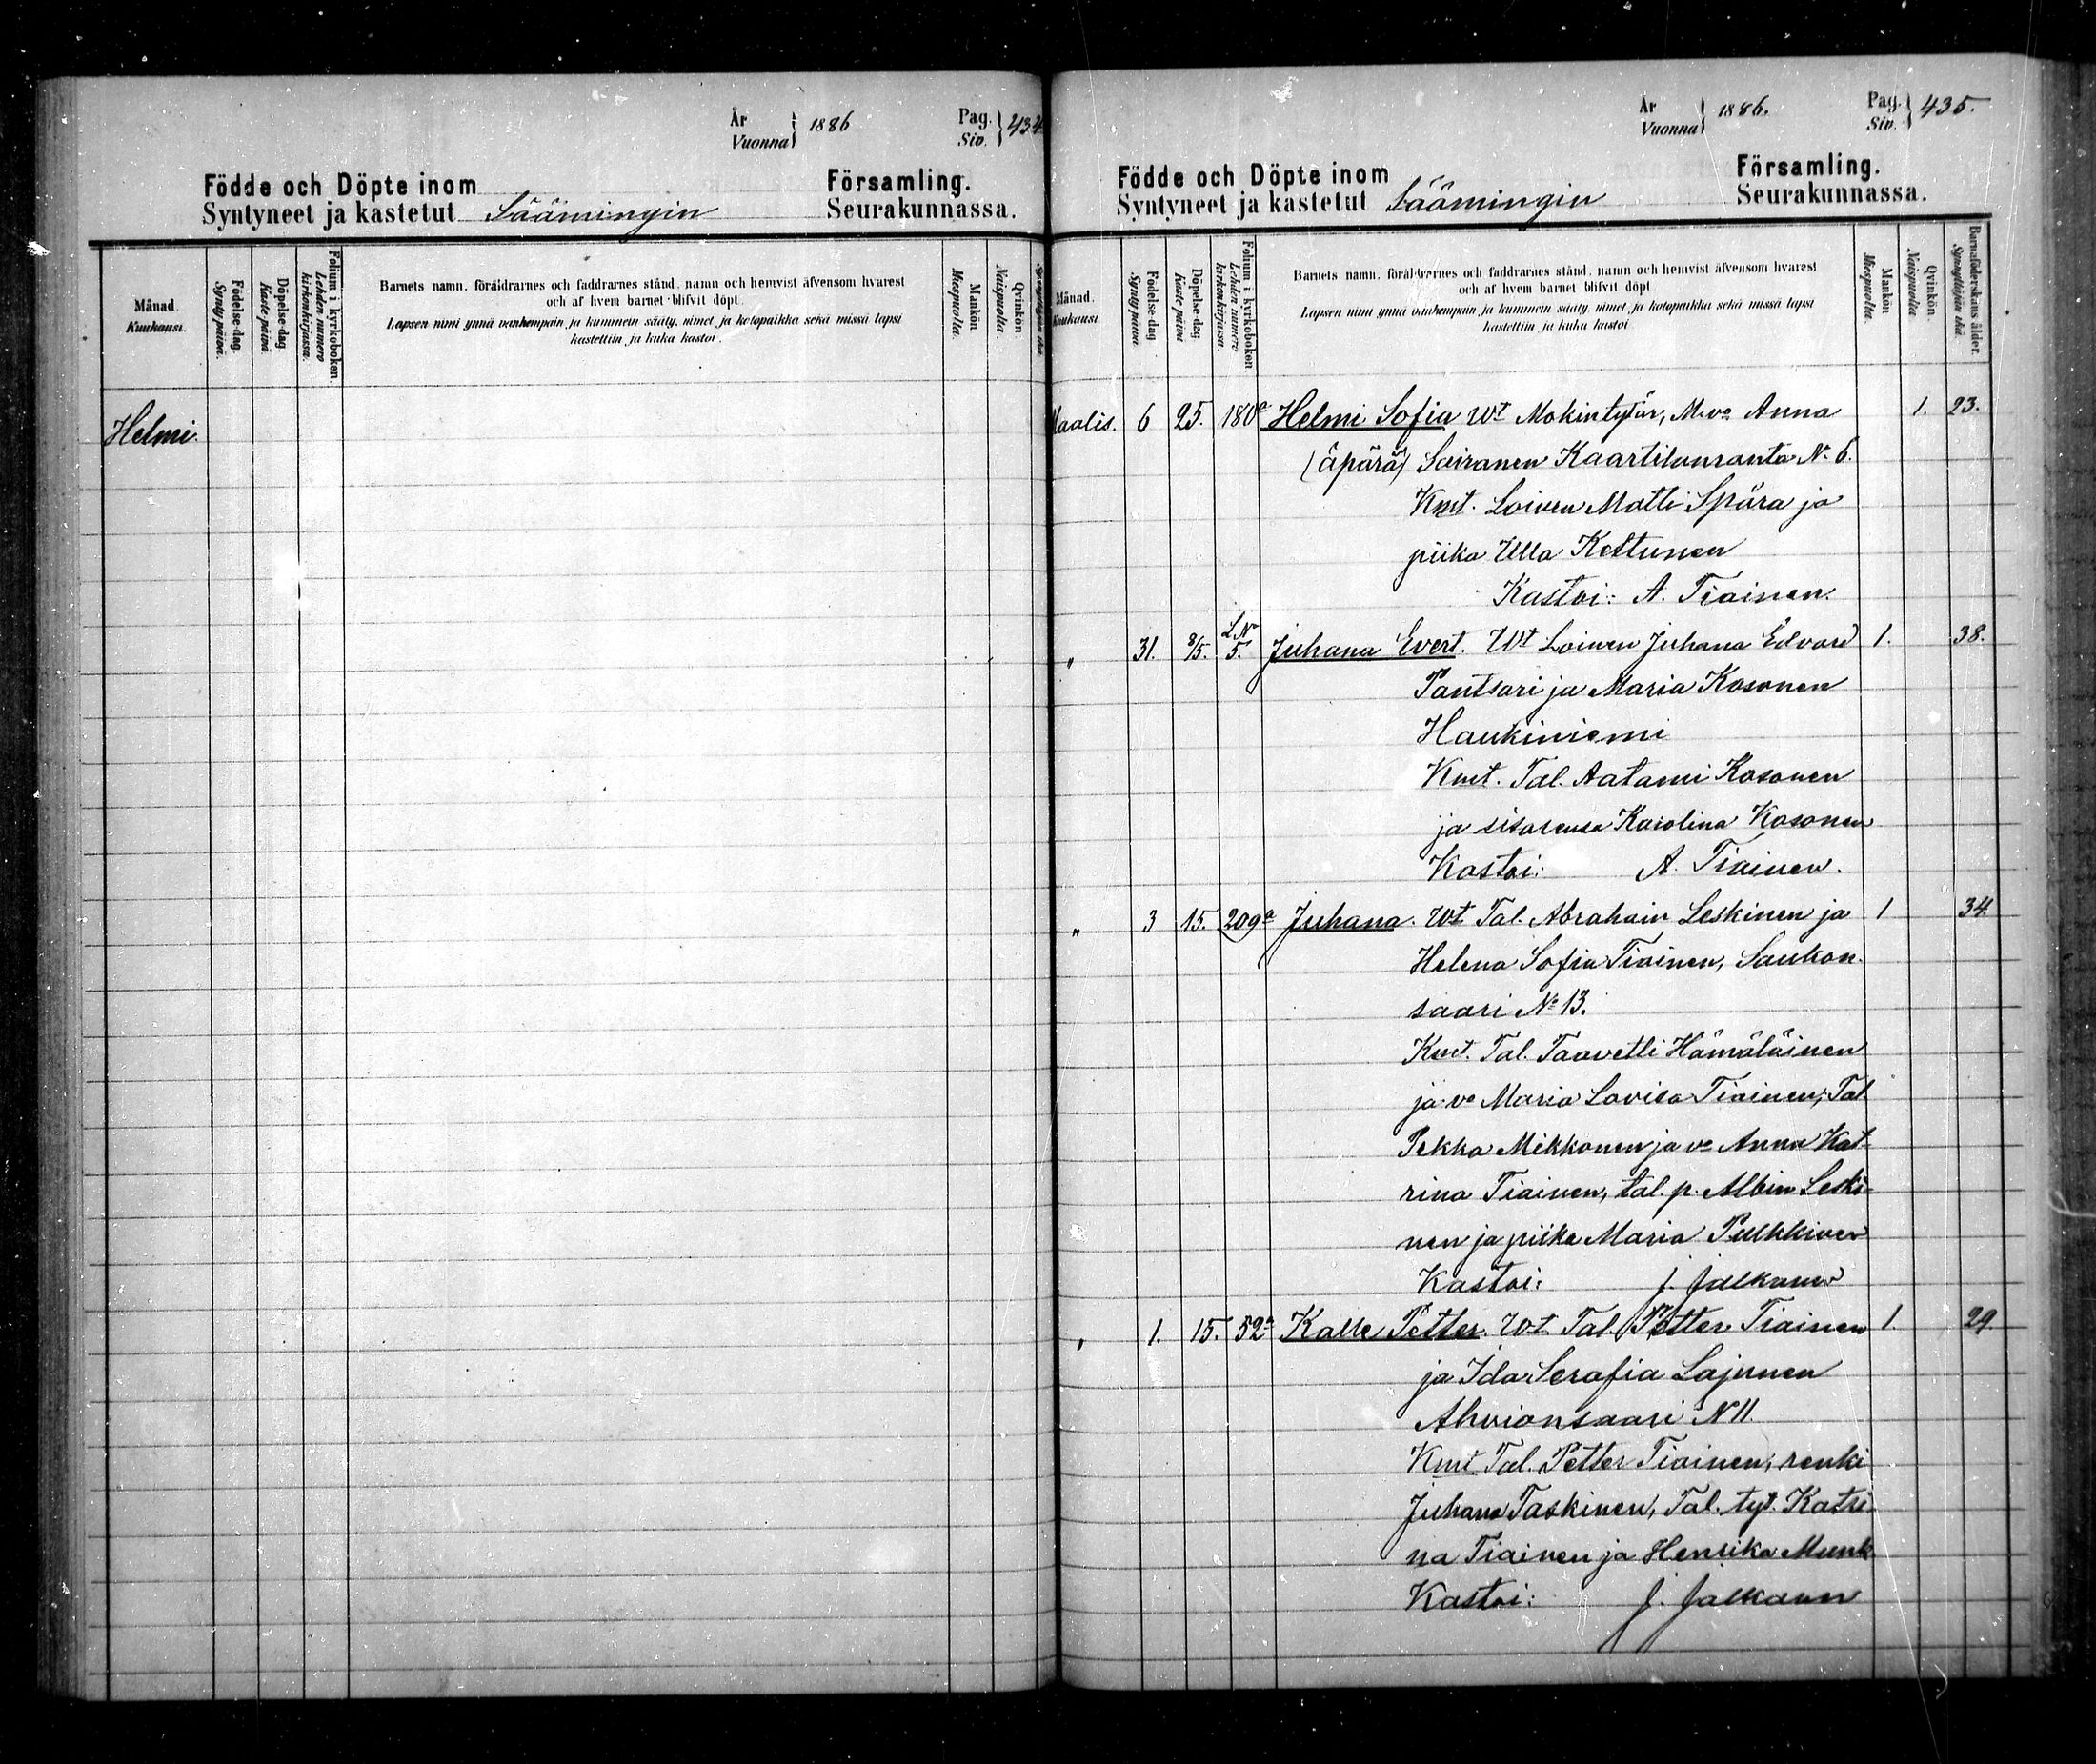 År
Vuonna 1886
Pag.
Siv. 434
Födde och Döpte inom Församling.
Syntyneet ja kastetut Säämingin Seurakunnassa.
Månad.
Kuukausi.
Födelse-dag.
Synty päivä.
Döpelse-dag.
Kaste päivä
Folium i kyrkoboken.
Lehden numero
kirkonkirjassa.
Barnets namn, föräldrarnes och faddrarnes stånd, namn och hemvist äfvensom hvarest
och af hvem barnet blifvit döpt.
Lapsen nimi ynnä vanhempain ja kummein sääty, nimet ja kotopaikka sekä missä lapsi
kastettiin ja kuka kastoi.
Mankön
Miespuolta.
Qvinkön
Naispuolta.
Helmi.
År
Vuonna 1886.
Pag.
Siv. 435.
Födde och Döpte inom Församling.
Syntyneet ja kastetut Säämingin Seurakunnassa.
Månad.
Kuukausi
Födelse-dag
Synty päivä.
Döpelse dag
Kaste päivä
Folium i kyrkoboken
Lehden numero
kirkonkirjassa.
Barnets namn, föräldrarnes och faddrarnes stånd, namn och hemvist äfvensom hvarest
och af hvem barnet blifvit döpt
Lapsen nimi ynnä vanhempain ja kummein sääty, nimet ja kotopaikka sekä missä lapsi
kastettiin ja kuka kastoi
Mankön
Miespuolta.
Qvinkön.
Naispuolta
Barnaföderskans ålder.
Synnyttäjän ikä.
Maalis. 6 25. 180a Helmi Sofia Wt Mökintytär, M.va Anna 1. 23.
(äpärä) Sairanen Kaartilanranta N. 6.
Kmt. Loinen Matti Spåra ja
piika Ulla Kettunen
Kastoi: A. Tiainen.
" 31. 8/5. L.No 5. Juhana Evert. Wt Loinen Juhana Edvard 1. 38.
Pantsari ja Maria Kosonen
Haukiniemi
Kmt. Tal. Aatami Kosonen
ja sisarensa Karolina Kosonen
Kastoi: A. Tiainen.
" 3 15. 209a Juhana. Wt Tal. Abraham Leskinen ja 1 34.
Helena Sofia Tiainen, Saukon-
saari No 13.
Kmt. Tal. Taavetti Hämäläinen
ja va Maria Lovisa Tiainen, Tal.
Pekka Mikkonen ja va Anna Kat-
rina Tiainen, tal. p. Albin Leski-
nen ja piika Maria Pulkkinen
Kastoi: J. Jalkanen
" 1. 15. 52a Kalle Petter. Wt. Tal. Petter Tiainen 1. 29.
ja Ida Serafia Lajunen
Ahvionsaari N 11.
Kmt. Tal. Petter Tiainen, renki
Juhana Taskinen, Tal. tyt. Katri-
na Tiainen ja Henrika Munk
Kastoi: J. Jalkanen